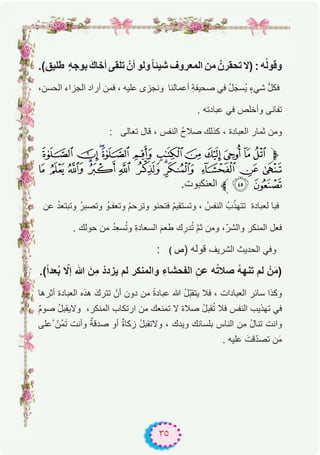 وقوله : (لا تحقرنَّ من المعروف شيئاً ولو أن تلقى أخاك بوجهٍ طليق).
فكلُّ شيءٍ يُسجَّلُ في صحيفةِ أعمالنا ونجزى عليه ، فمن أراد الجزاء الحسن،
تفانى وأخلص في عبادته .
ومن ثمار العبادة ، كذلك صلاحُ النفس ، قال تعالى :
﴿ ٱتْلُ مَآ أُوحِىَ إِلَيْكَ مِنَ ٱلْكِتَٰبِ وَأَقِمِ ٱلصَّلَوٰةَ ۖ إِنَّ ٱلصَّلَوٰةَ
تَنْهَىٰ عَنِ ٱلْفَحْشَآءِ وَٱلْمُنكَرِ ۗ وَلَذِكْرُ ٱللَّهِ أَكْبَرُ ۗ وَٱللَّهُ يَعْلَمُ مَا
تَصْنَعُونَ ٤٥ ﴾ العنكبوت.
فبا لعبادة تتهذّبُ النفسُ ، وتستقيمُ فتحنو وترحمُ وتعفـوُ وتصبرُ وتبتعدُ عن
فعل المنكر والشرّ، ومن ثمَّ تُدركُ طعمَ السعادةِ وتُسعدُ من حولك .
وفي الحديث الشريف قوله (ص ) :
(مَنْ لم تنههُ صلاتُه عن الفحشاءِ والمنكر لم يزددْ مِنَ اللهِ إلّا بُعداً).
وكذا سائر العبادات ، فلا يتقبّلُ الله عبادةً من دون أنْ تتركَ هذه العبادة أثرها
في تهذيب النفس فلا تُقبلُ صلاة لا تمنعك من ارتكاب المنكر، ولايقبلُ صومٌ
وانت تنالُ من الناس بلسانك ويدك ، ولاتقبلُ زكاةٌ أو صدقةٌ وأنت تَمُنُّ على
مَن تصدّقتَ عليه .
٣٥